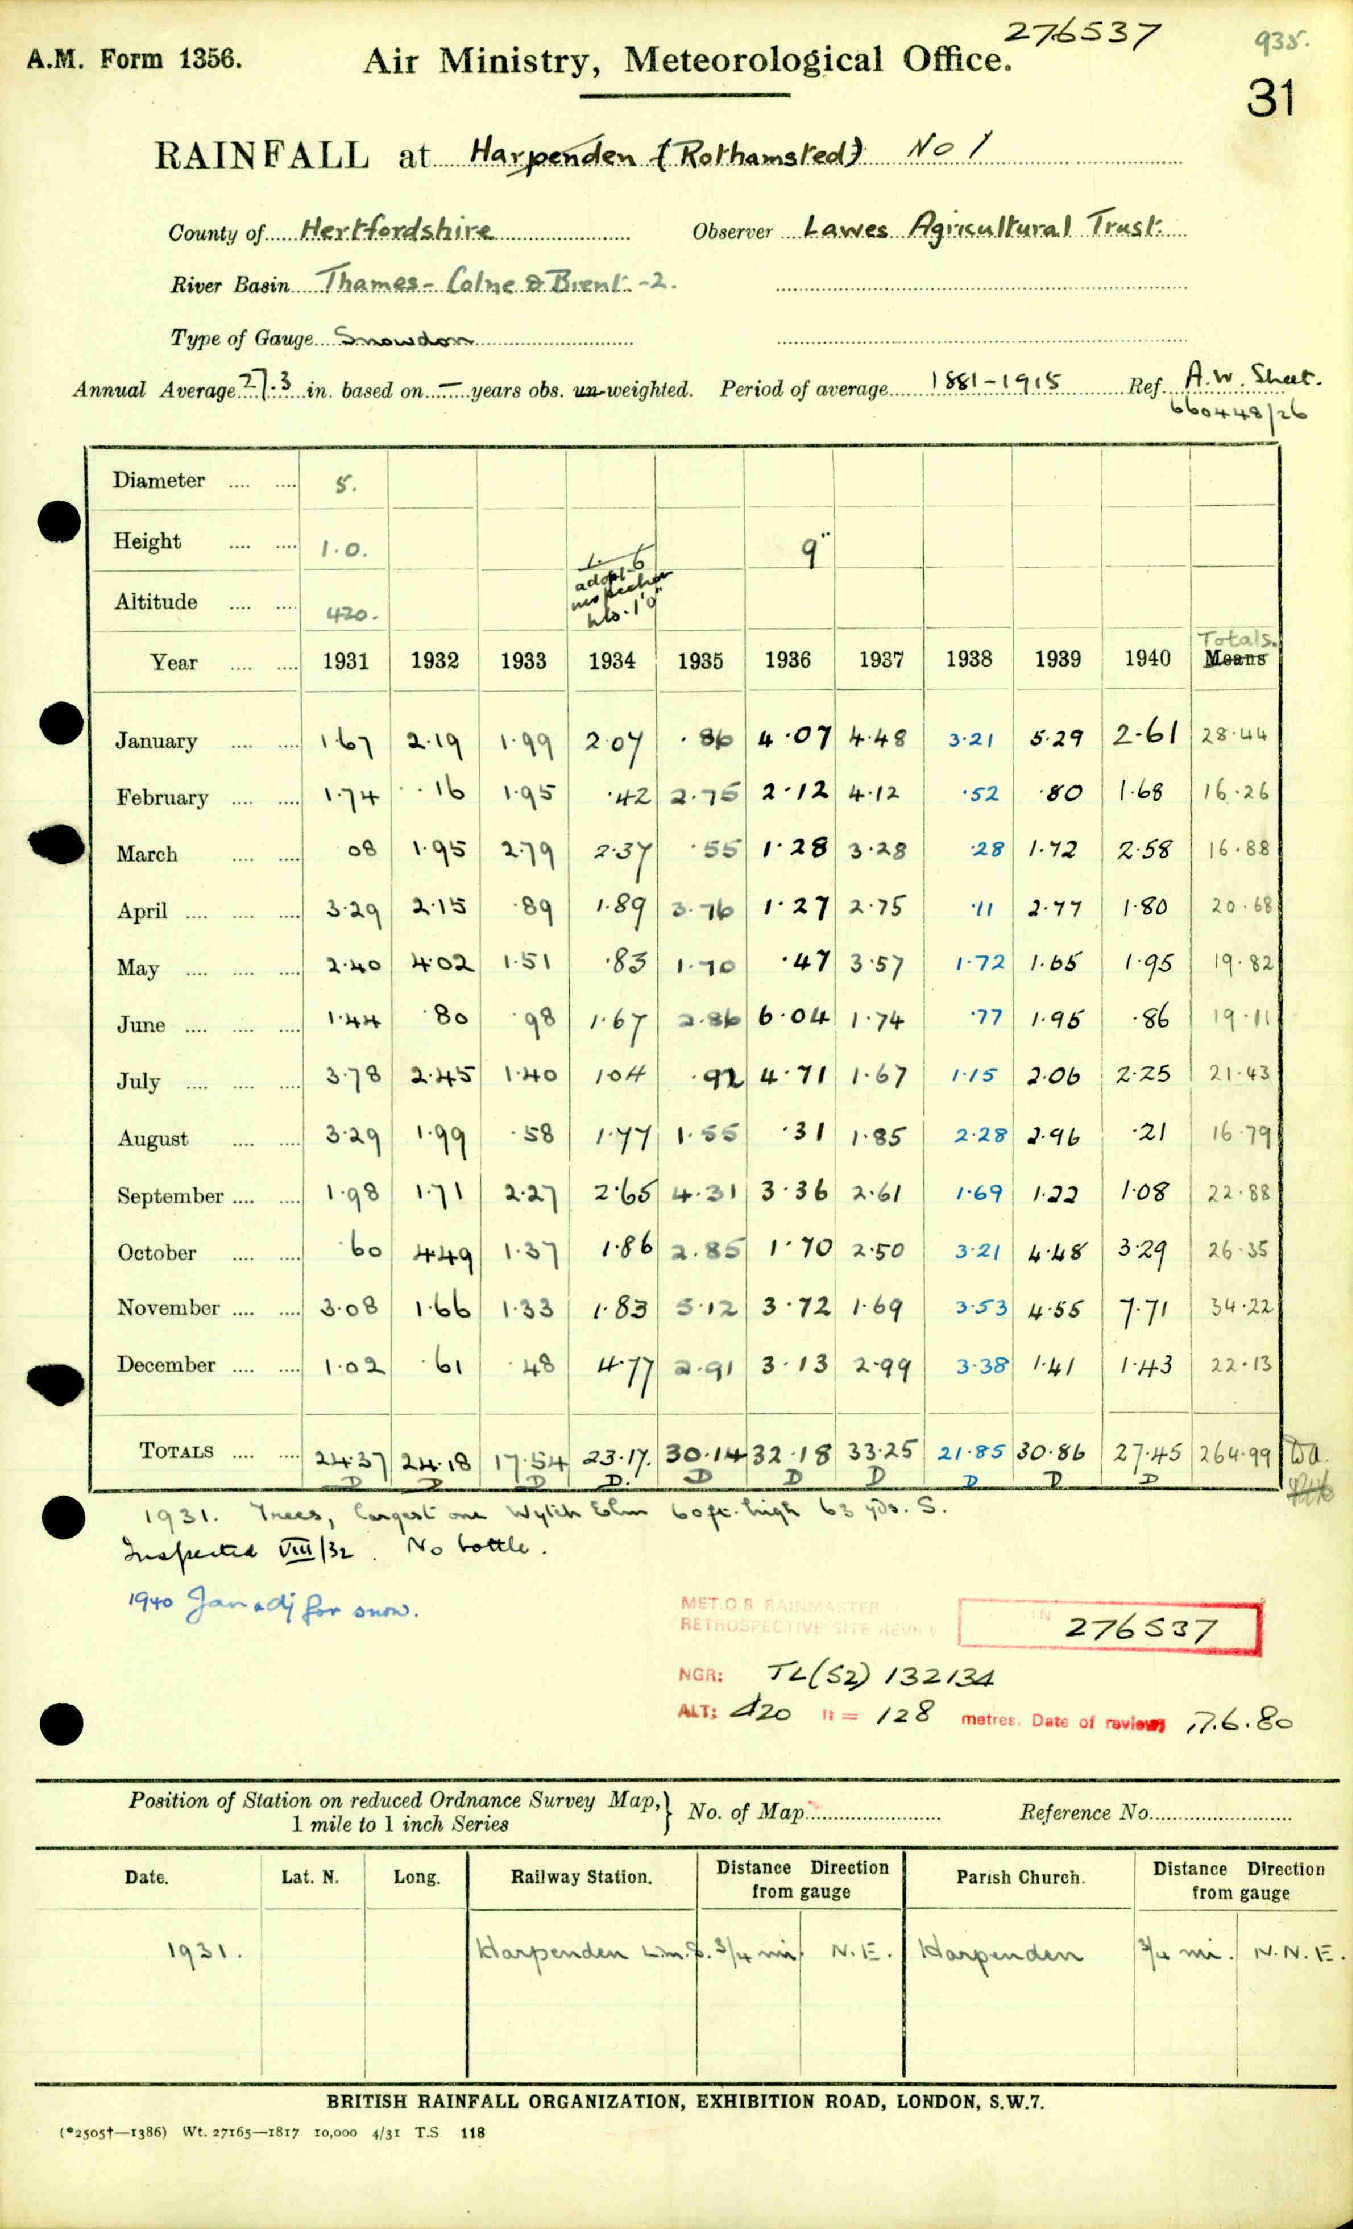 276537
935.
A.M. Form 1356.
Air Ministry, Meteorological Office.
31
RAINFALL at Harpenden (Rothamsted) No 1
County of Hertfordshire Observer Lawes Agricultural Trust.
River Basin Thames - Colne & Brent - 2.
Type of Gauge Snowdon
Annual Average 27.3 in. based on — years obs. un-weighted. Period of average 1881-1915 Ref. A.W. Sheet.
660448/26
Diameter .... .... 5.
Height .... .... 1.0. 1.6 9"
adopt
inspection
hts. 1'0"
Altitude .... .... 420.
Totals.
Year .... .... 1931 1932 1933 1934 1935 1936 1937 1938 1939 1940 Means
January .... .... 1.67 2.19 1.99 2.07 .86 4.07 4.48 3.21 5.29 2.61 28.44
February .... .... 1.74 .16 1.95 .42 2.75 2.12 4.12 .52 .80 1.68 16.26
March .... .... 08 1.95 2.79 2.37 .55 1.28 3.28 .28 1.72 2.58 16.88
April .... .... .... 3.29 2.15 .89 1.89 3.76 1.27 2.75 .11 2.77 1.80 20.68
May .... .... .... 2.40 4.02 1.51 .83 1.70 .47 3.57 1.72 1.65 1.95 19.82
June .... .... .... 1.44 .80 .98 1.67 2.86 6.04 1.74 .77 1.95 .86 19.11
July .... .... .... 3.78 2.45 1.40 1.04 .92 4.71 1.67 1.15 2.06 2.25 21.43
August .... .... 3.29 1.99 .58 1.77 1.55 .31 1.85 2.28 2.96 .21 16.79
September .... .... 1.98 1.71 2.27 2.65 4.31 3.36 2.61 1.69 1.22 1.08 22.88
October .... .... .60 4.49 1.37 1.86 2.85 1.70 2.50 3.21 4.48 3.29 26.35
November .... .... 3.08 1.66 1.33 1.83 5.12 3.72 1.69 3.53 4.55 7.71 34.22
December .... .... 1.02 .61 .48 4.77 2.91 3.13 2.99 3.38 1.41 1.43 22.13
TOTALS .... .... 24.37 24.18 17.54 23.17. 30.14 32.18 33.25 21.85 30.86 27.45 264.99
D D D D. D D D D D D
1931. Trees, largest one Wylch Elm 60ft. high 63 yds. S.
Inspected VIII/32. No bottle.
1940 Jan adj for snow.
MET.O 8 RAINMASTER
RETROSPECTIVE SITE REVIEW
276537
NGR: TL(52) 132134
ALT: 420 ft = 128 metres. Date of review 17.6.80
Position of Station on reduced Ordnance Survey Map,} No. of Map Reference No.
1 mile to 1 inch Series
Date. Lat. N. Long. Railway Station. Distance Direction from gauge Parish Church. Distance Direction from gauge
1931. Harpenden L.M.S. 3/4 mi. N.E. Harpenden 3/4 mi. N.N.E.
BRITISH RAINFALL ORGANIZATION, EXHIBITION ROAD, LONDON, S.W.7.
(*2505†—1386) Wt. 27165—1817 10,000 4/31 T.S 118